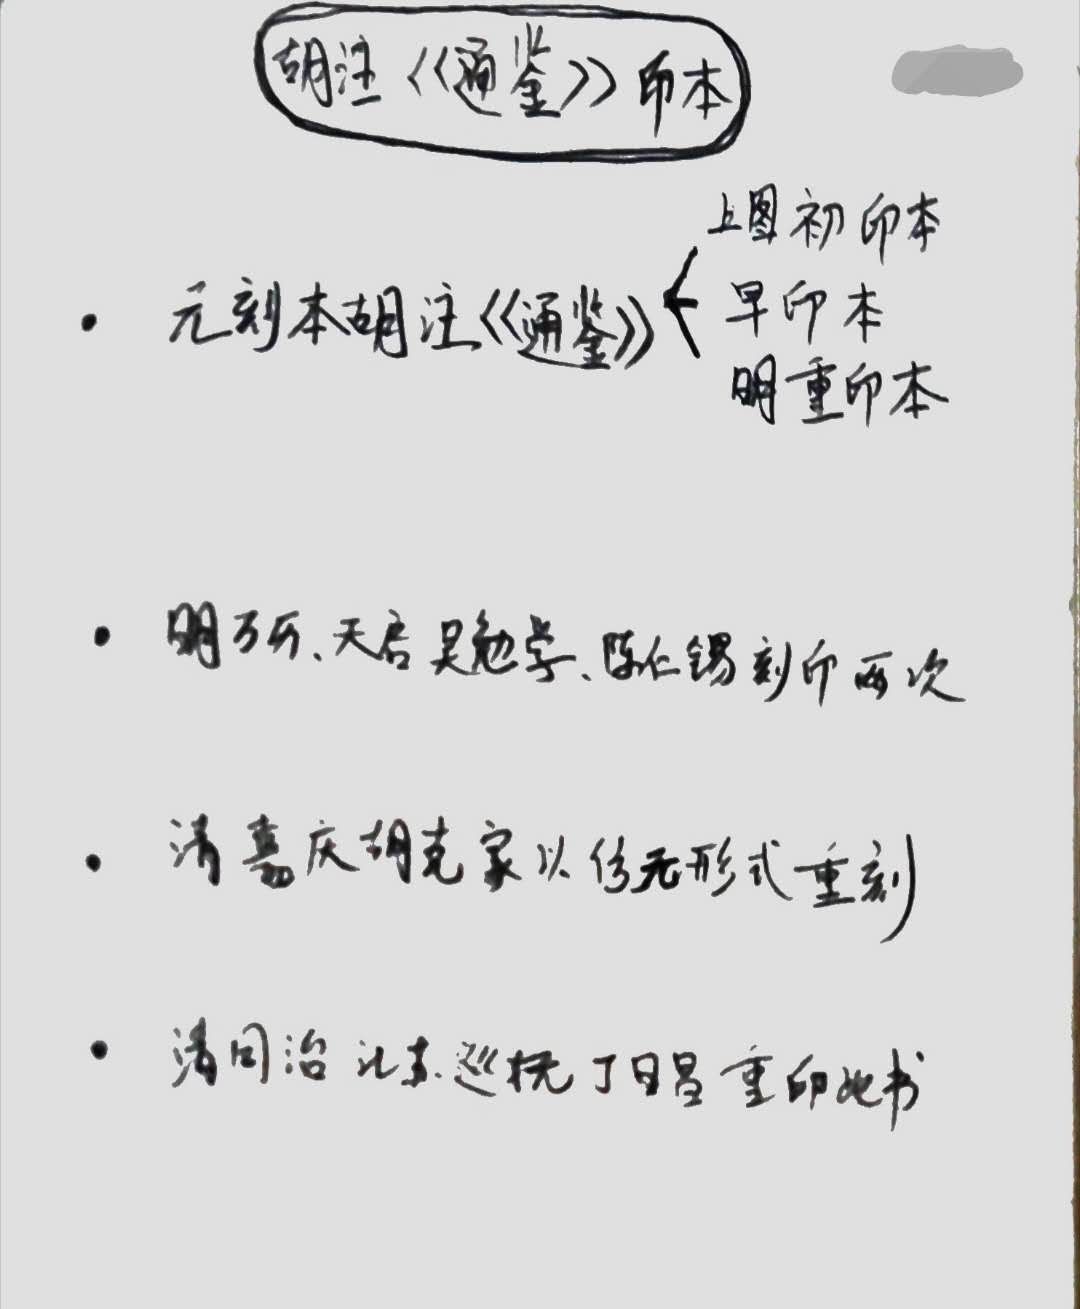 胡注《通鉴》印本
上图初印本
元刻本胡注《通鉴》
早印本
明重印本
明万历、天启吴勉学、陈仁锡刻印两次
清嘉庆胡克家以仿元形式重刻
清同治江苏巡抚丁日昌重印此书